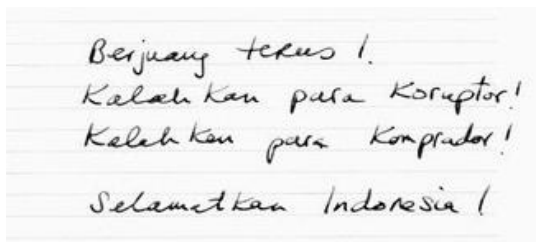 Berjuang terus !.
Kalahkan para Koruptor!
Kalahkan para Komprador!
Selamatkan Indonesia !